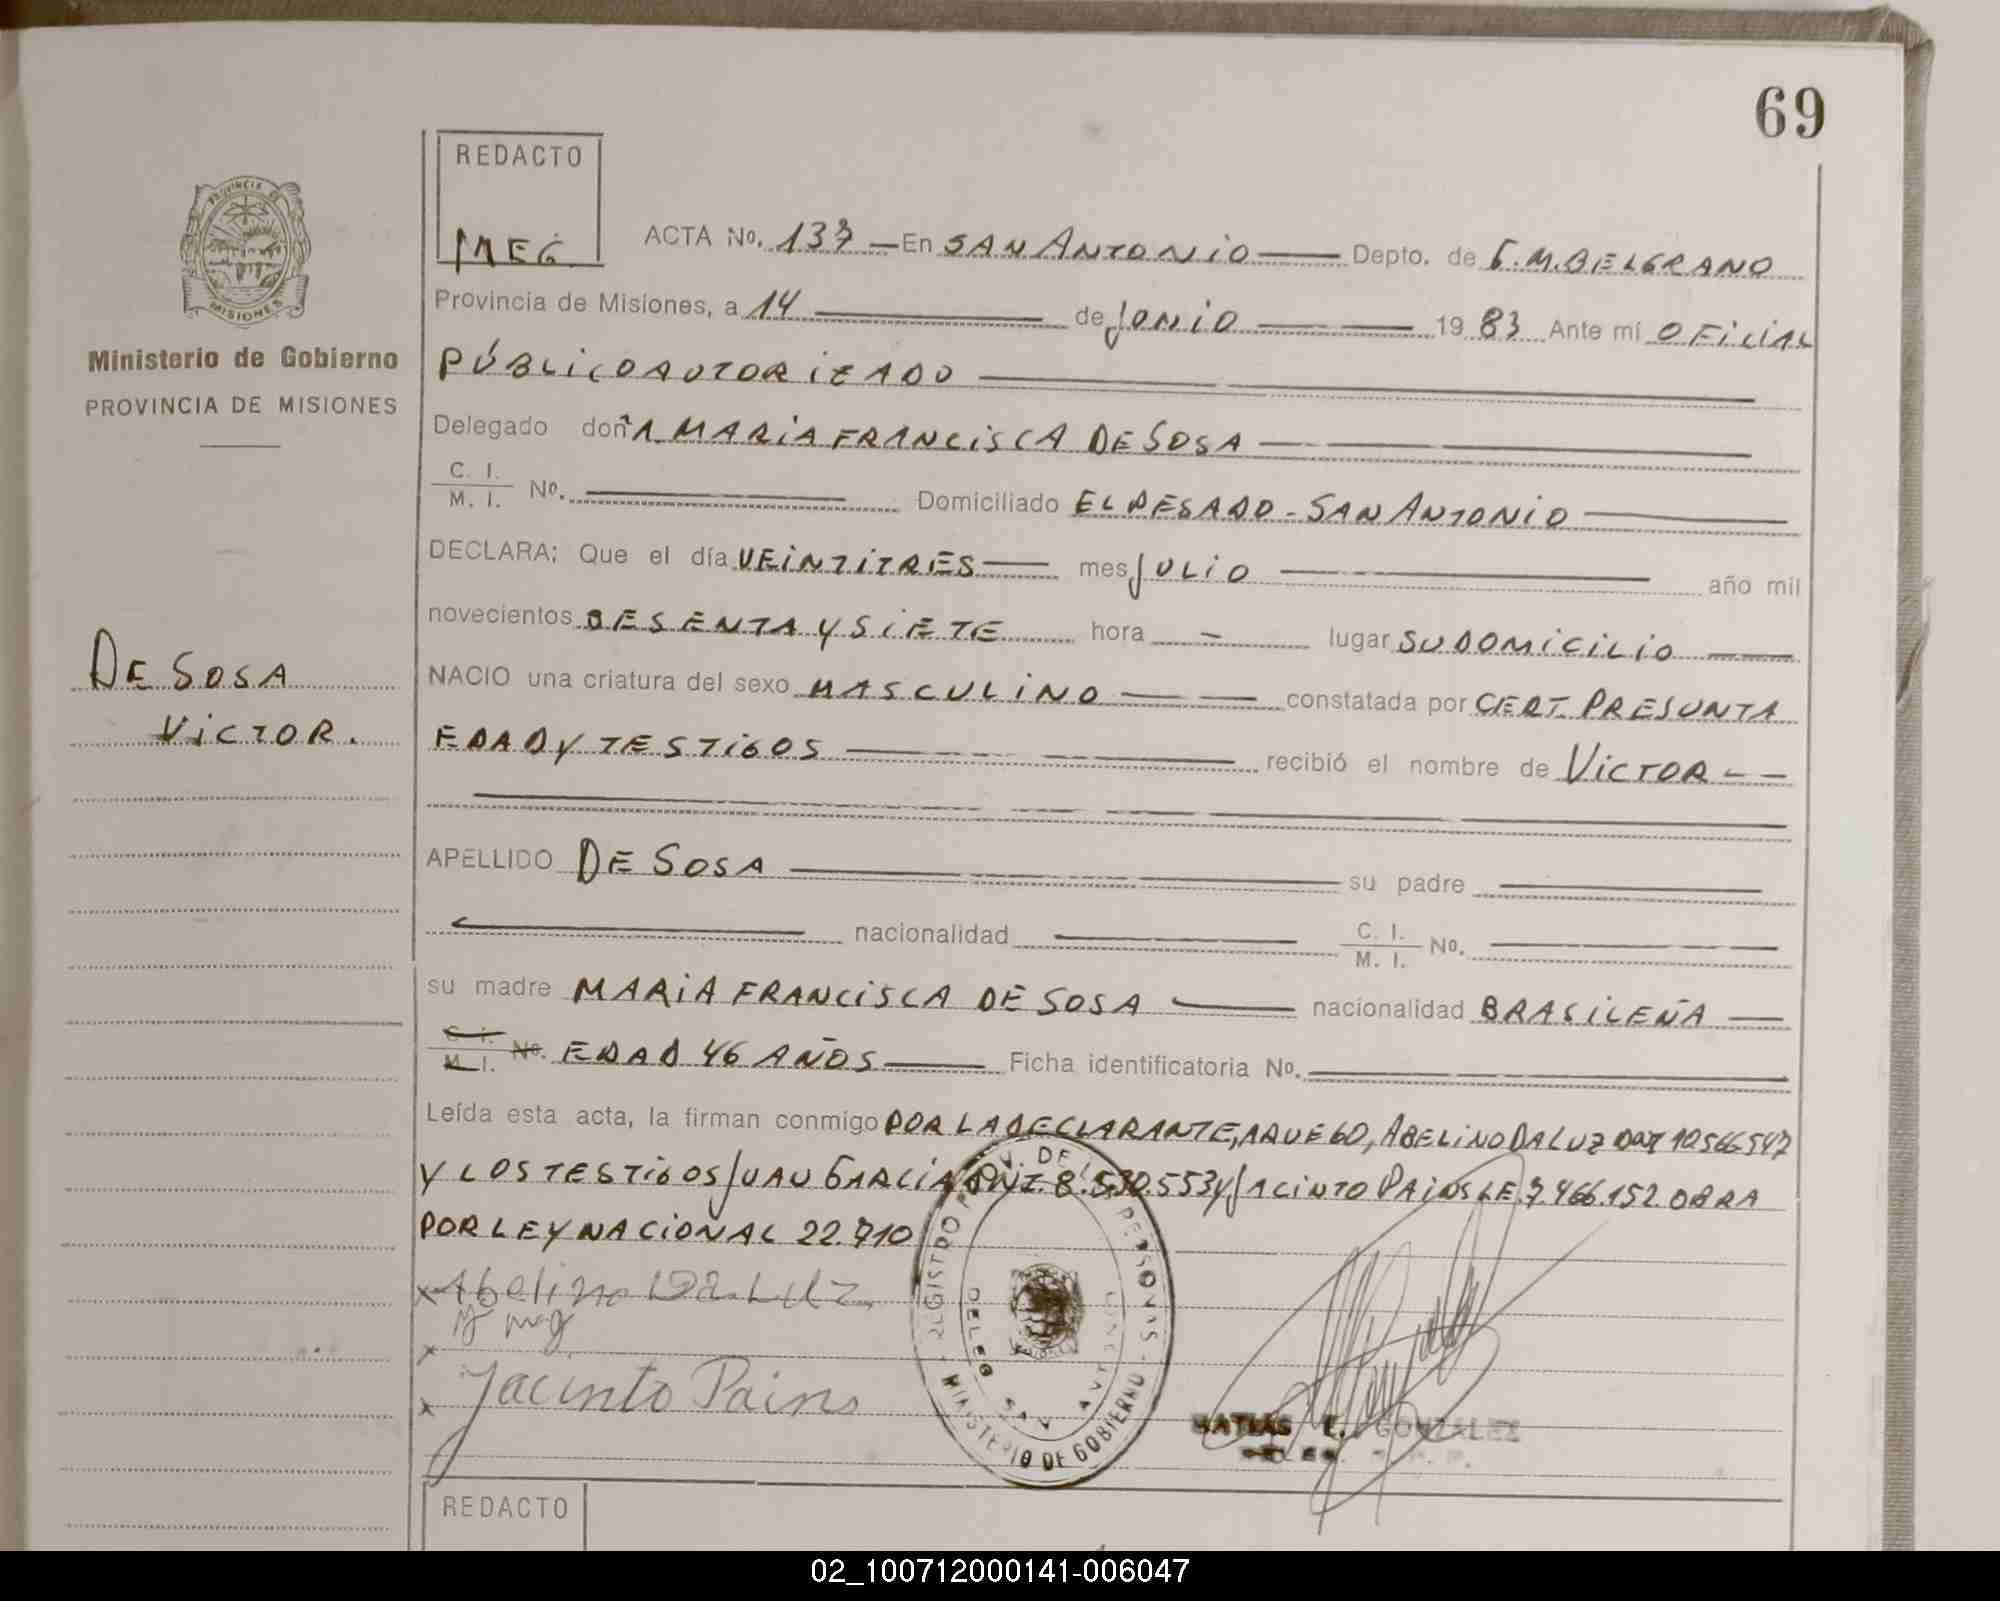 69
REDACTO
MEG
PROVINCIA DE
MISIONES
Ministerio de Gobierno
PROVINCIA DE MISIONES
ACTA No. 137 — En SAN ANTONIO — Depto. de G.M. BELGRANO
Provincia de Misiones, a 14 — de JUNIO — 1983 Ante mí OFICIAL
PÚBLICO AUTORIZADO —
Delegado doñA MARIA FRANCISCA DE SOSA —
C. I. / M. I. No. — Domiciliado EL DESADO - SAN ANTONIO —
DECLARA: Que el día VEINTITRES — mes JULIO — año mil
novecientos SESENTA Y SIETE hora — lugar SU DOMICILIO —
NACIO una criatura del sexo MASCULINO — constatada por CERT. PRESUNTA
EDAD Y TESTIGOS — recibió el nombre de VICTOR — —
DE SOSA
VICTOR.
APELLIDO DE SOSA — su padre —
— nacionalidad — C. I. / M. I. No. —
su madre MARIA FRANCISCA DE SOSA — nacionalidad BRASILEÑA —
C. I. / M. I. No. EDAD 46 AÑOS — Ficha identificatoria No. —
Leída esta acta, la firman conmigo POR LA DECLARANTE, A RUEGO, ABELINO DA LUZ 10.566.547
Y LOS TESTIGOS JUAN GARCÍA DNI. 8.530.553 Y JACINTO PAINS LE. 7.466.152. OBRA
POR LEY NACIONAL 22.710
x Abelino Da Luz
x
x Jacinto Pains
REGISTRO DE PERSONAS
MINISTERIO DE GOBIERNO
MATIAS E. GONZALEZ
REDACTO
02_100712000141-006047